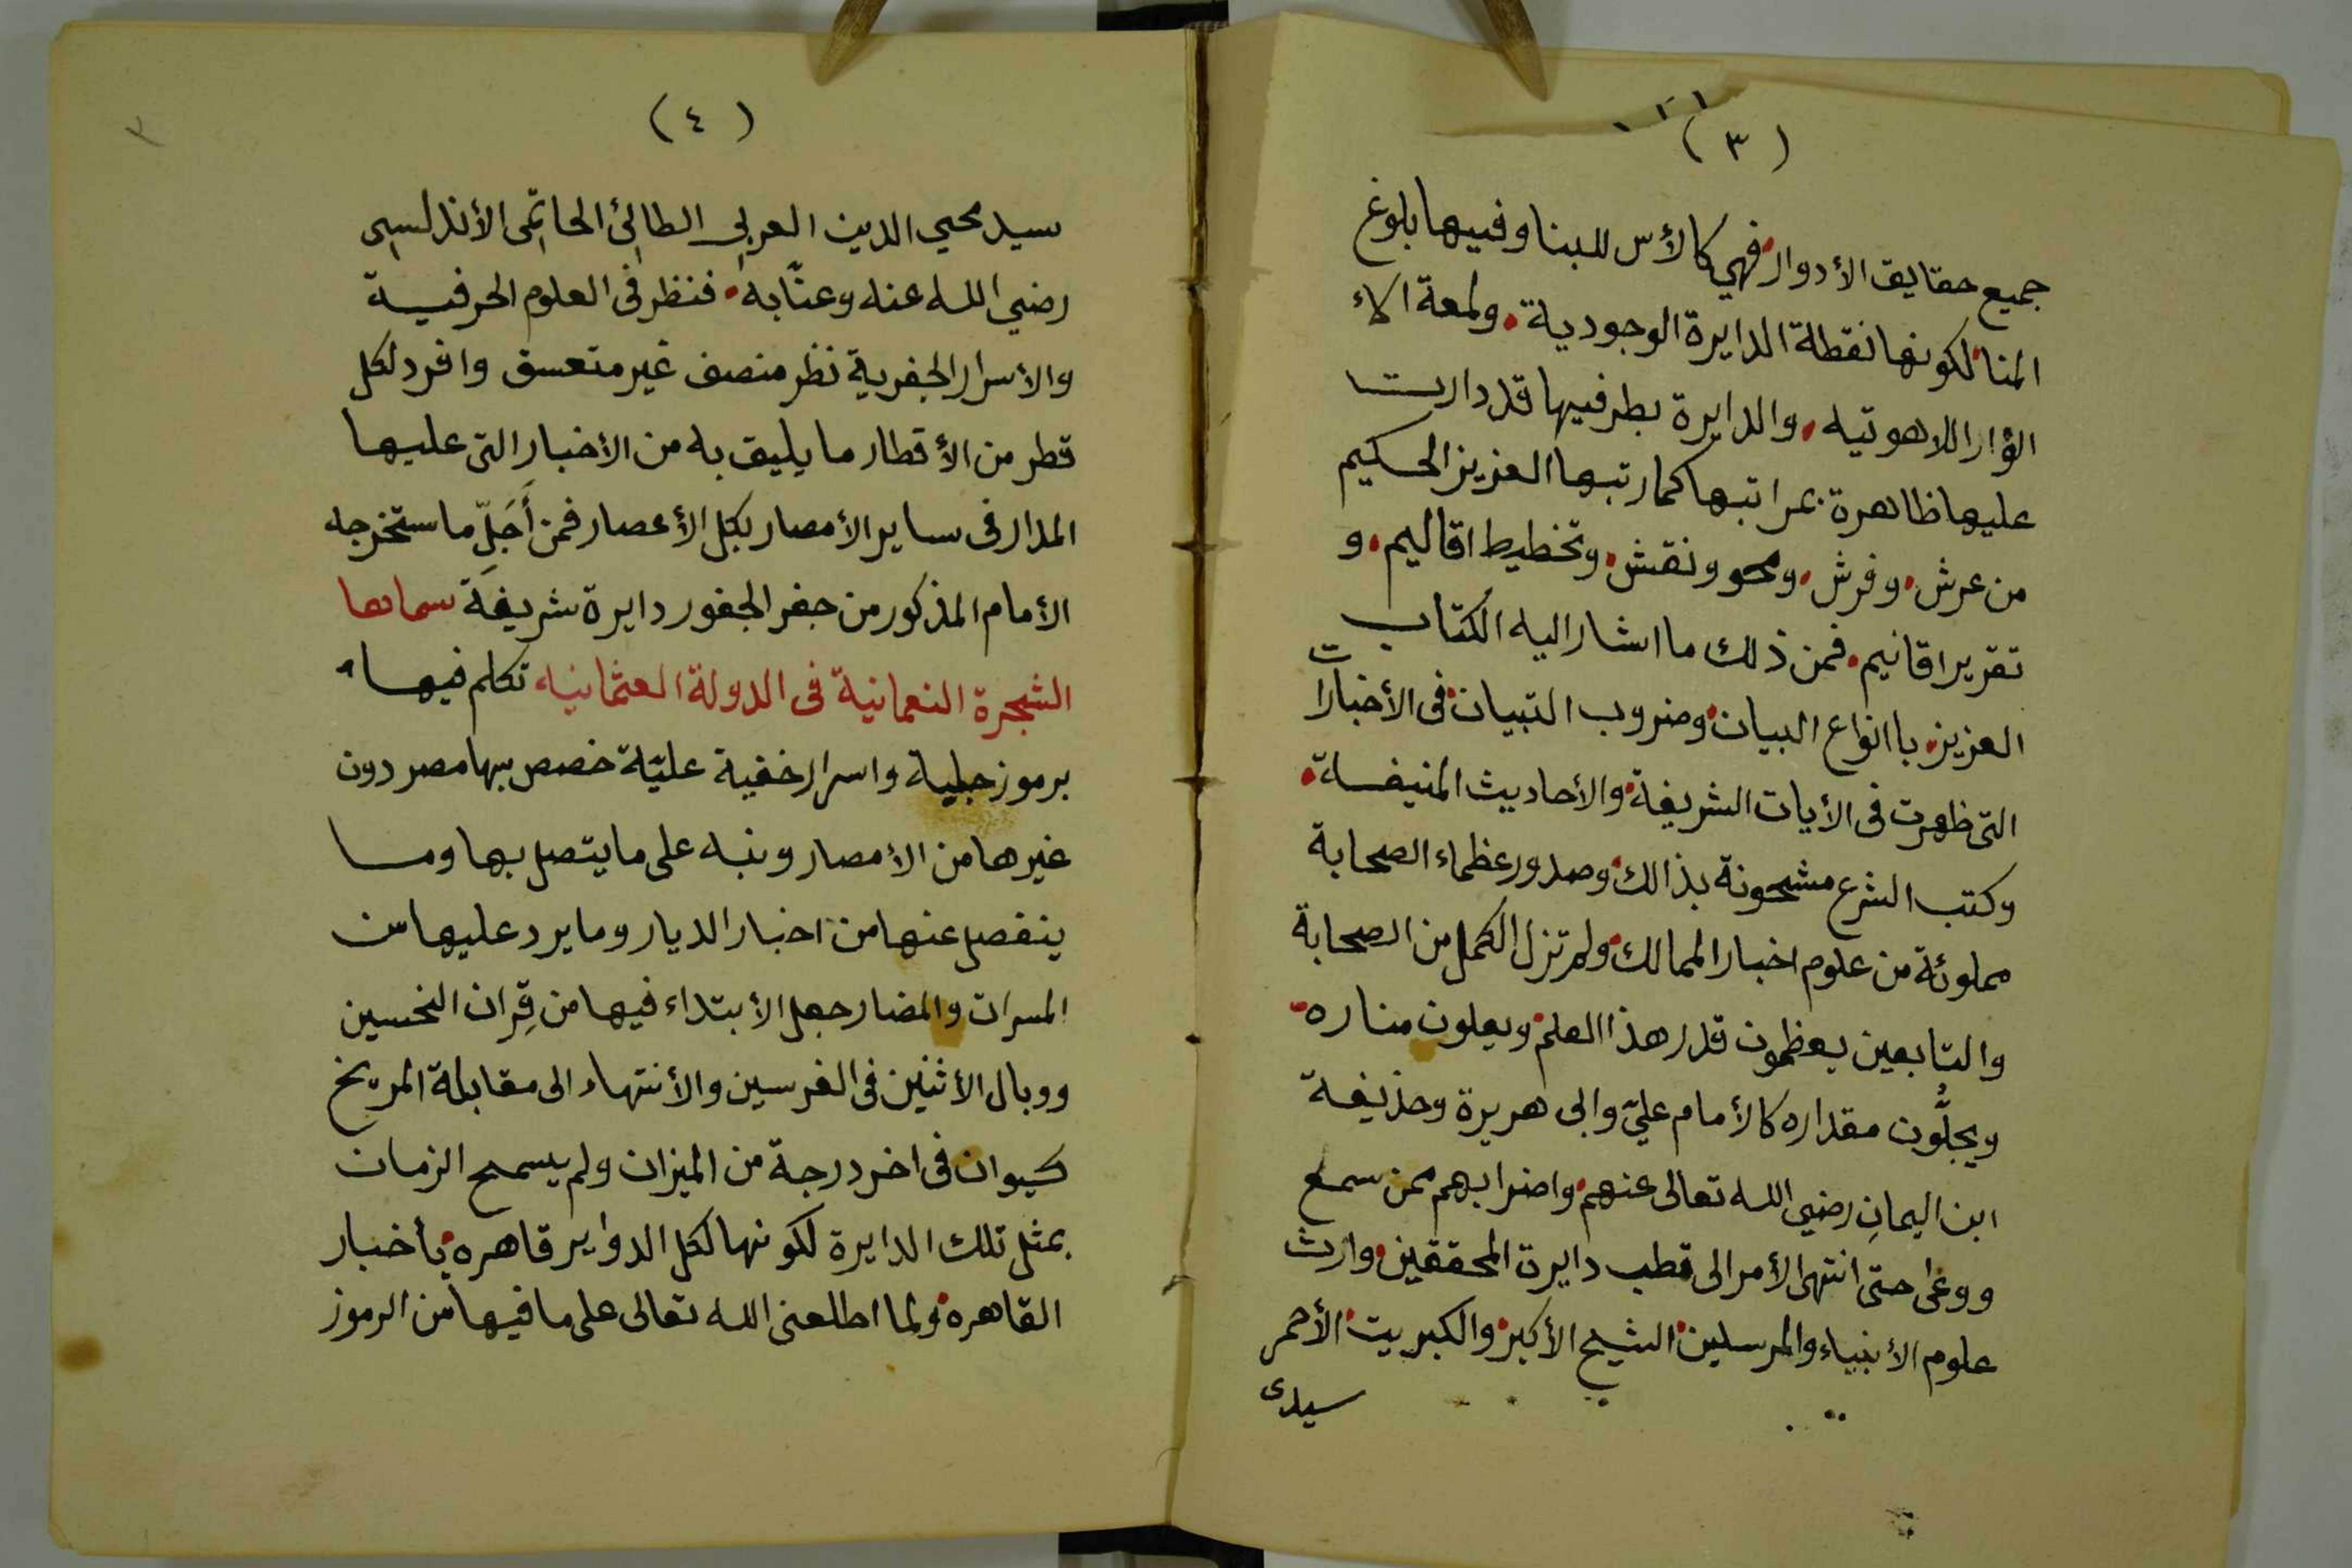 (٣)
جميع حقايق الأدوار فهي كالأس للبنا وفيها بلوغ
المنا لكونها نقطة الدايرة الوجودية، ولمعة
اللاهوتيه، والدايرة بطرفيها قد دارت
عليها ظاهرة بمراتبها كما رتبها العزيز الحكيم
من عرش، وفرش، ومحو ونقش، وتخطيط اقاليم، و
تقرير اقانيم، فمن ذلك ما اشار اليه الكتاب
العزيز، باانواع البيان، وضروب التبيان، فى الأخبارات
التى ظهرت فى الأيات الشريفة، والأحاديث المنيفة،
وكتب الشرع مشحونة بذالك، وصدور عظماء الصحابة
مملوئة من علوم اخبار الممالك، ولم تزل الكمل من الصحابة
والتابعين يعظمون قدر هذا العلم، ويعلون مناره،
ويجلُّون مقداره كالأمام عليّ وابى هريرة وحذيفة
ابن اليمانِ رضي الله تعالى عنهم، واضرابهم ممن سمع
ووعى حتى انتهى الأمر الى قطب دايرة المحققين، وارث
علوم الأنبياء والمرسلين، الشيخ الأكبر، والكبريت، الأحمر
سيدى
(٤)
سيد محيي الدين العربي الطائي الحاتمى الأندلسى
رضي الله عنه وعنّا به، فنظر فى العلوم الحرفية
والأسرار الجفرية نظر منصف غير متعسق وافرد لكل
قطر من الأقطار ما يليق به من الأخبار التى عليها
المدار فى ساير الأمصار بكل الأعصار فمن أَجَلِّ ما ستخرجه
الأمام المذكور من جفر الجفور دايرة شريفة سماها
الشجرة النعمانية فى الدولة العثمانيه تكلم فيها
برموز جلية واسرار خفية عليّة خصص بها مصر دون
غيرها من الأمصار ونبه على ما يتصل بها وما
ينفصل عنها من اخبار الديار وما يرد عليها من
المسرات والمضار جعل الأبتداء فيها من قِران النحسين
ووبال الأثنين فى الفرسين والأنتهاء الى مقابلة المريخ
كيوان فى اخر درجة من الميزان ولم يسمح الزمان
بمثل تلك الدايرة لكونها لكل الدواير قاهره، بأخبار
القاهره، ولما اطلعنى الله تعالى على ما فيها من الرموز